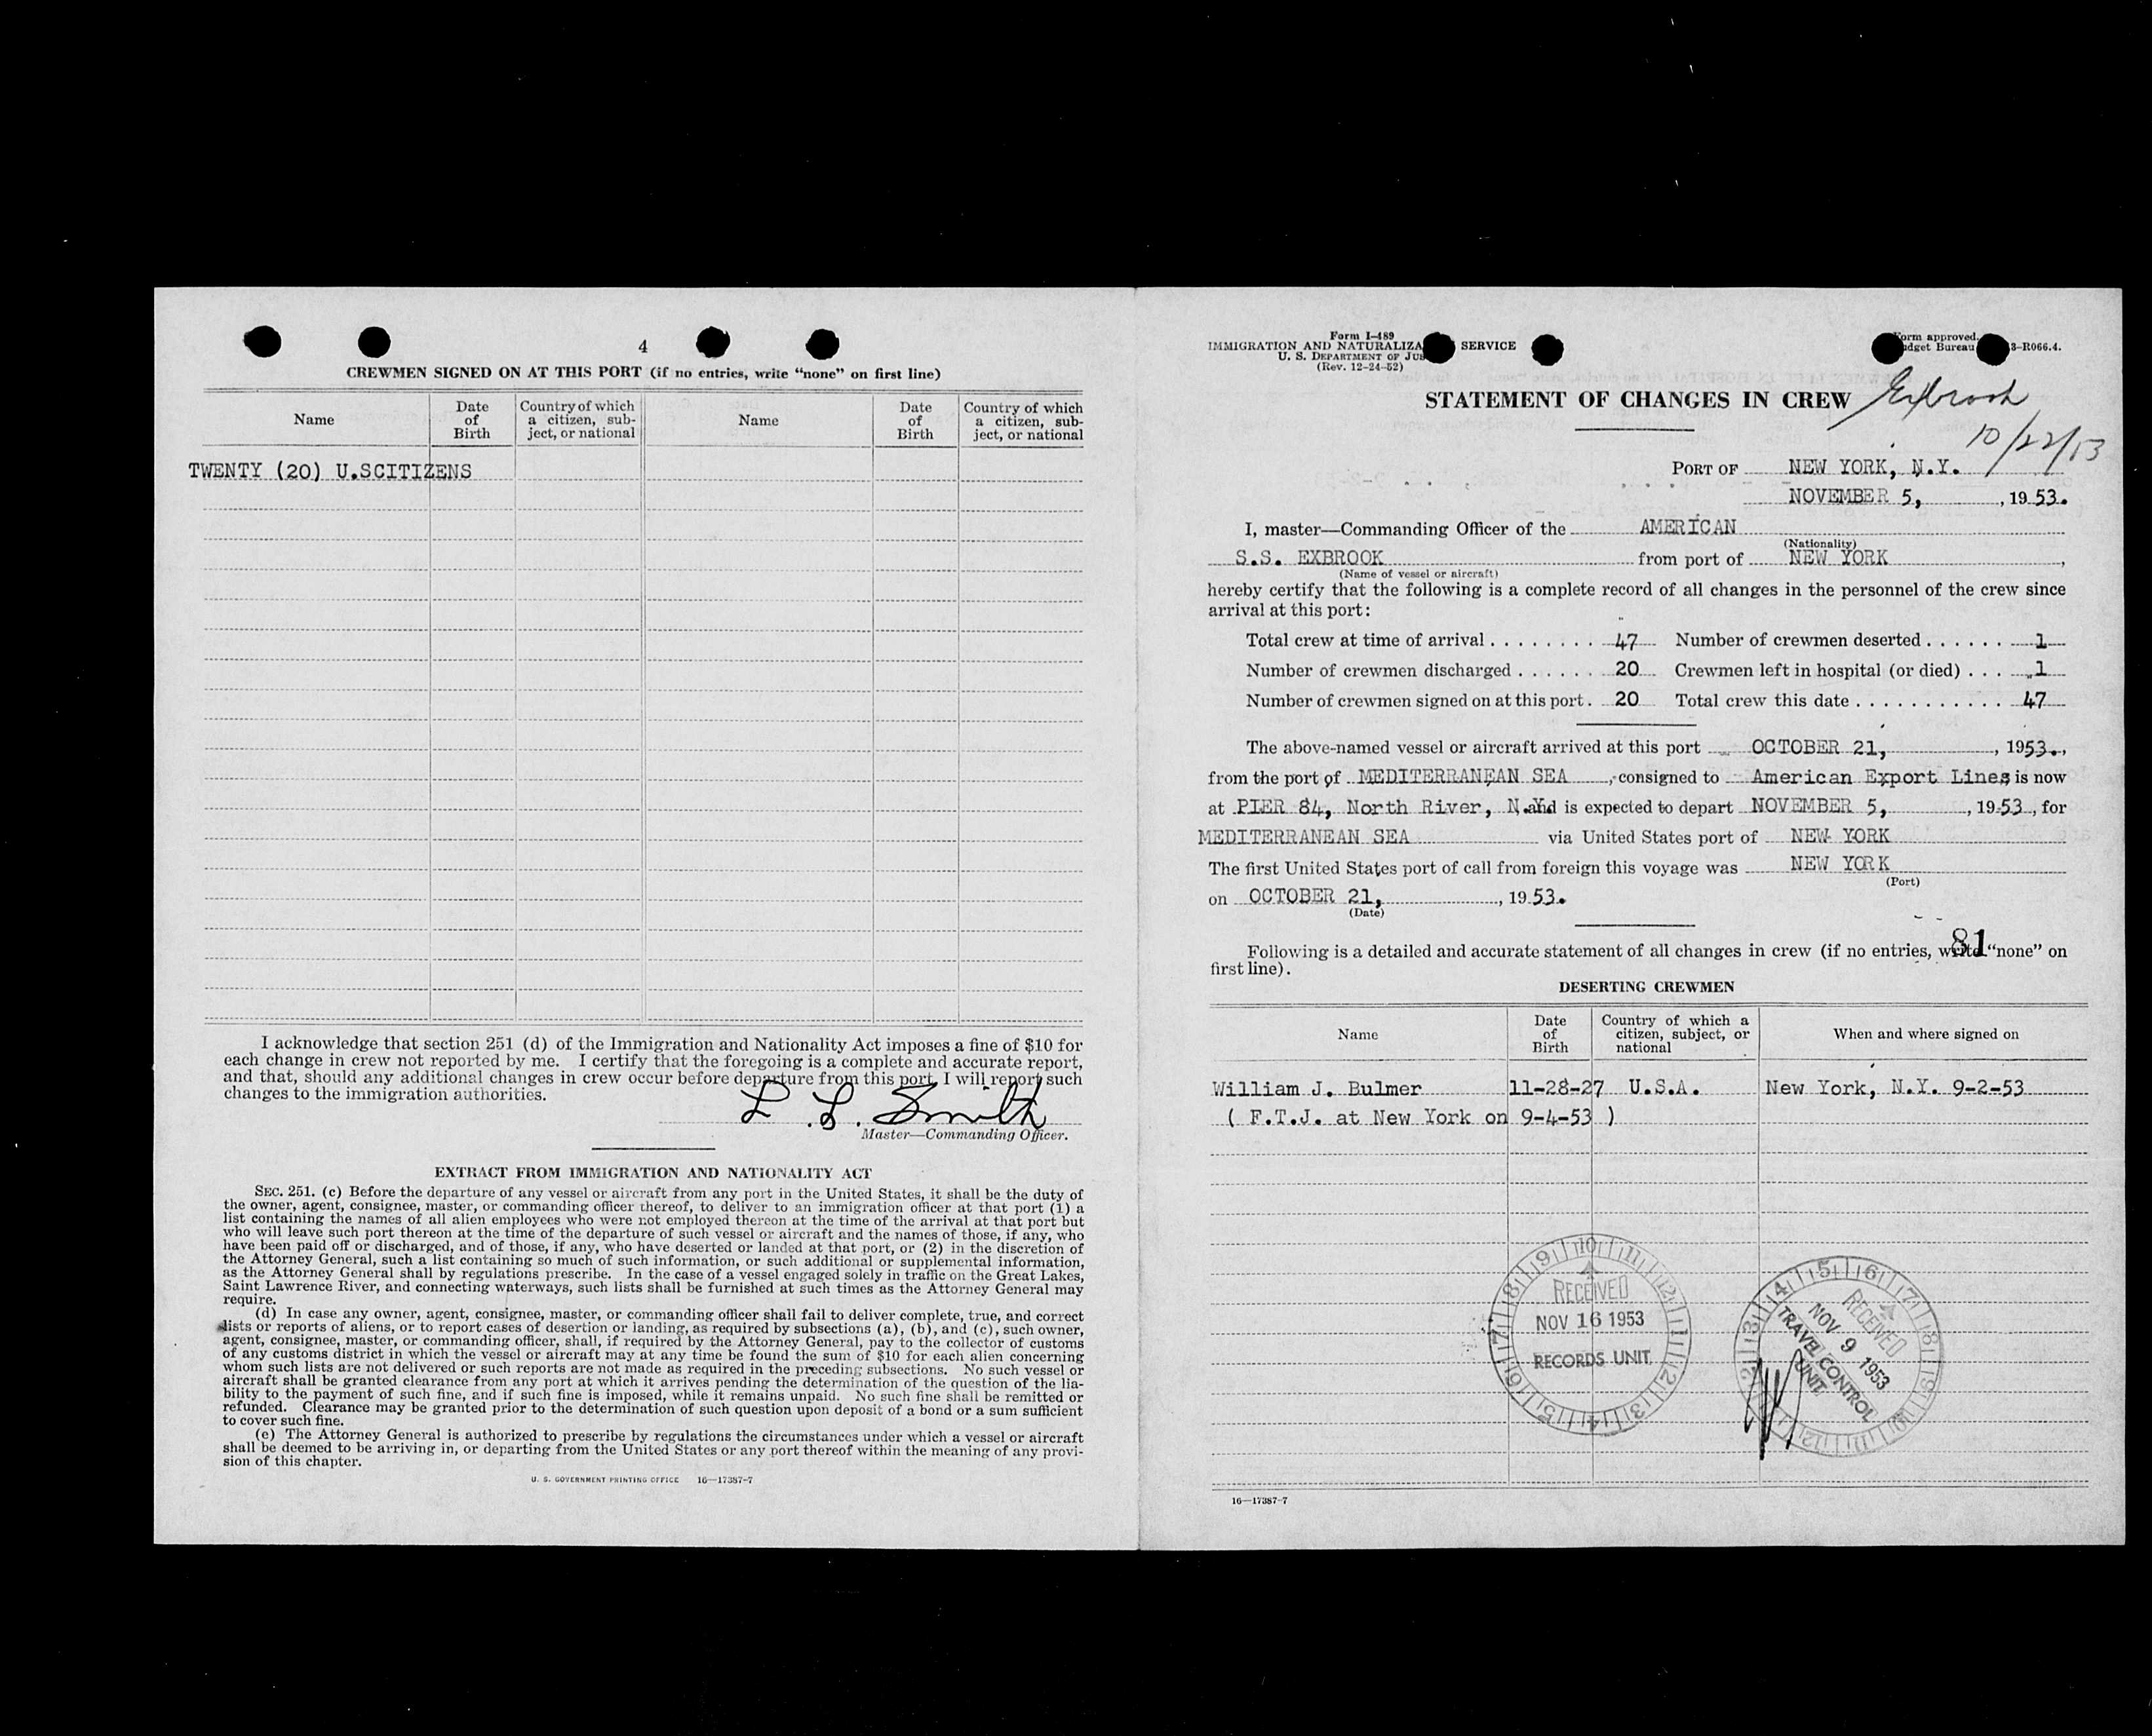 4
CREWMEN SIGNED ON AT THIS PORT (if no entries, write “none” on first line)
Name
Date of Birth
Country of which a citizen, sub-ject, or national
Name
Date of Birth
Country of which a citizen, sub-ject, or national
TWENTY (20) U.SCITIZENS
I acknowledge that section 251 (d) of the Immigration and Nationality Act imposes a fine of $10 for
each change in crew not reported by me. I certify that the foregoing is a complete and accurate report,
and that, should any additional changes in crew occur before departure from this port, I will report such
changes to the immigration authorities.
L. L. Smith
Master—Commanding Officer.
EXTRACT FROM IMMIGRATION AND NATIONALITY ACT
SEC. 251. (c) Before the departure of any vessel or aircraft from any port in the United States, it shall be the duty of
the owner, agent, consignee, master, or commanding officer thereof, to deliver to an immigration officer at that port (1) a
list containing the names of all alien employees who were not employed thereon at the time of the arrival at that port but
who will leave such port thereon at the time of the departure of such vessel or aircraft and the names of those, if any, who
have been paid off or discharged, and of those, if any, who have deserted or landed at that port, or (2) in the discretion of
the Attorney General, such a list containing so much of such information, or such additional or supplemental information,
as the Attorney General shall by regulations prescribe. In the case of a vessel engaged solely in traffic on the Great Lakes,
Saint Lawrence River, and connecting waterways, such lists shall be furnished at such times as the Attorney General may
require.
(d) In case any owner, agent, consignee, master, or commanding officer shall fail to deliver complete, true, and correct
lists or reports of aliens, or to report cases of desertion or landing, as required by subsections (a), (b), and (c), such owner,
agent, consignee, master, or commanding officer, shall, if required by the Attorney General, pay to the collector of customs
of any customs district in which the vessel or aircraft may at any time be found the sum of $10 for each alien concerning
whom such lists are not delivered or such reports are not made as required in the preceding subsections. No such vessel or
aircraft shall be granted clearance from any port at which it arrives pending the determination of the question of the lia-
bility to the payment of such fine, and if such fine is imposed, while it remains unpaid. No such fine shall be remitted or
refunded. Clearance may be granted prior to the determination of such question upon deposit of a bond or a sum sufficient
to cover such fine.
(e) The Attorney General is authorized to prescribe by regulations the circumstances under which a vessel or aircraft
shall be deemed to be arriving in, or departing from the United States or any port thereof within the meaning of any provi-
sion of this chapter.
U. S. GOVERNMENT PRINTING OFFICE 16—17387-7
Form I-489
IMMIGRATION AND NATURALIZA SERVICE
U. S. DEPARTMENT OF JUS
(Rev. 12-24-52)
orm approved.
dget Bureau 3-R066.4.
STATEMENT OF CHANGES IN CREW
Exbrook
10/22/53
PORT OF NEW YORK, N.Y.
NOVEMBER 5, , 19 53.
I, master—Commanding Officer of the AMERICAN
(Nationality)
S.S. EXBROOK from port of NEW YORK ,
(Name of vessel or aircraft)
hereby certify that the following is a complete record of all changes in the personnel of the crew since
arrival at this port:
Total crew at time of arrival . . . . . . . . 47 Number of crewmen deserted . . . . . . 1
Number of crewmen discharged . . . . . . 20 Crewmen left in hospital (or died) . . . 1
Number of crewmen signed on at this port . 20 Total crew this date . . . . . . . . . . . 47
The above-named vessel or aircraft arrived at this port OCTOBER 21, , 1953.,
from the port of MEDITERRANEAN SEA , consigned to American Export Lines is now
at PIER 84, North River, N.Y. and is expected to depart NOVEMBER 5, , 19 53 , for
MEDITERRANEAN SEA via United States port of NEW YORK
The first United States port of call from foreign this voyage was NEW YORK
(Port)
on OCTOBER 21, , 19 53.
(Date)
81
Following is a detailed and accurate statement of all changes in crew (if no entries, write “none” on
first line).
DESERTING CREWMEN
Name
Date of Birth
Country of which a citizen, subject, or national
When and where signed on
William J. Bulmer 11-28-27 U.S.A. New York, N.Y. 9-2-53
( F.T.J. at New York on 9-4-53 )
RECEIVED
NOV 16 1953
RECORDS UNIT
RECEIVED
NOV 9 1953
TRAVEL CONTROL
UNIT
16—17387-7